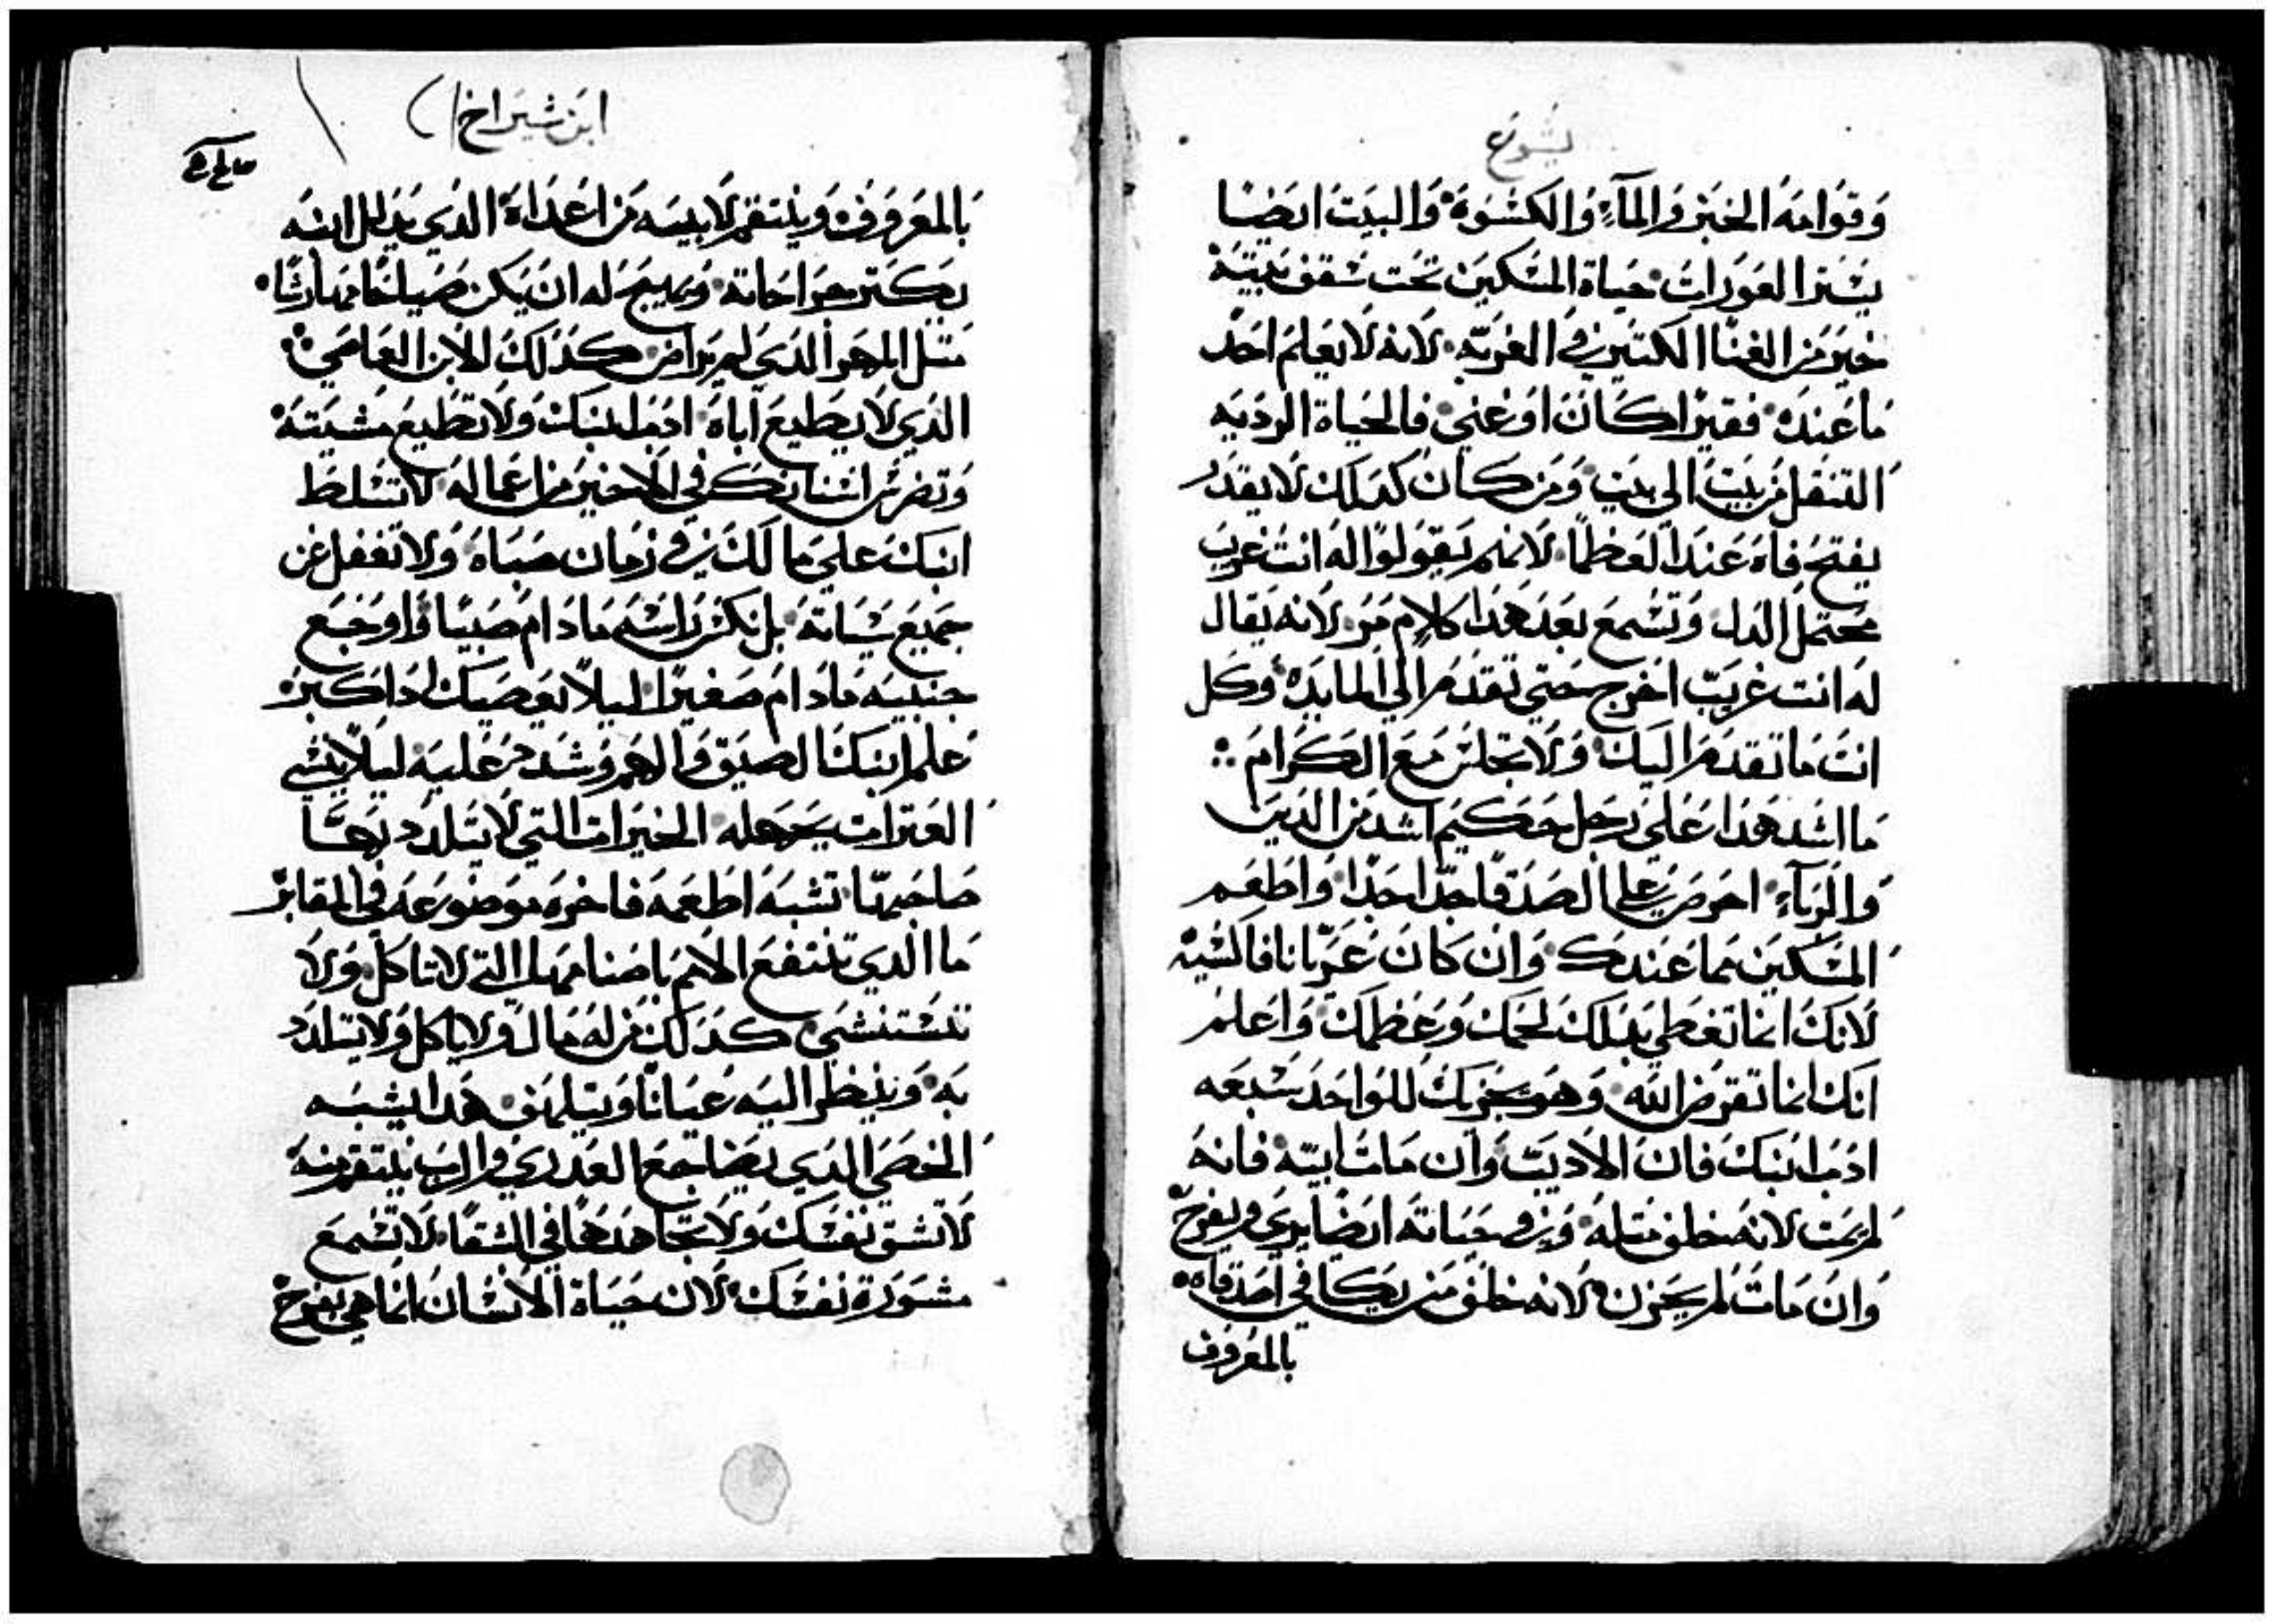 يشوع
وقوامه الخبز والمآء والكسوة والبيت ايضا
يستر العورات حياة المسكين تحت سقف بيته
خير من الغنا الكتير في الغربه لانه لا يعلم احد
ما عنده فقيرا كان او غني فالحياة الرديه
التنقل من بيت الي بيت ومن كان كدلك لا يقدر
يفتح فاه عند العظما لانهم يقولوا له انت غريب
محتمل الدل وتسمع بعد هدا كلام مر لانه يقال
له انت غريب اخرج حتي تقدم الي المايده وكل
انت ما تقدم اليك ولا تجلس مع الكرام
ما اشد هدا علي رجل حكيم اشد من الدين
والربآء احرص علي الصدقا جدا جدا واطعم
المسكين مما عندك وان كان عريانا فاكسيه
لانك انما تغطي بدلك لحمك وعظمك واعلم
انك انما تقرض الله وهو يجزيك للواحد سبعه
ادب ابنك فان الاديب وان مات ابيه فانه
لم يمت لانه خلف مثله وفي حياته ايضا يري ويفرح
وان مات لم يحزن لانه خلف من يكافي اصدقاه
بالمعروف
ابن شيراخ
بالمعروف وينتقم لابيه من اعداه الدي يدلل ابنه
يكتر جراحاته ويهيج له ان يكن صياحا مهارشا
متل المهر الدي لم يراض كدلك الابن العاصي
الدي لا يطيع اباه ادب ابنك ولا تطيع مشيته
وتضرس اسنانك في الاخير من اعماله لا تسلط
ابنك علي مالك في زمان صباه ولا تغفل عن
جميع سياته بل نكس راسه ما دام صبيا واوجع
جنبيه ما دام صغيرا ليلا يعصيك ادا كبر
علم ابنك الضيق والهم وشدد عليه ليلا ينشي
العترات بجهله الخيرات التي لا يتلدد بها
صاحبها تشبه اطعمه فاخره موضوعه في المقابر
ما الدي تنتفع الامم باصنامها التي لا تاكل ولا
تستنشي كدلك من له مال ولا ياكل ولا يتلدد
به وينظر اليه عيانا ويتلهف هدا يشبه
الخصي الدي يضاجع العدري والرب ينتقم منه
لا تشق نفسك ولا تجاهدها في الشقا لا تسمع
مشورة نفسك لان حياة الانسان انما هي بفرح